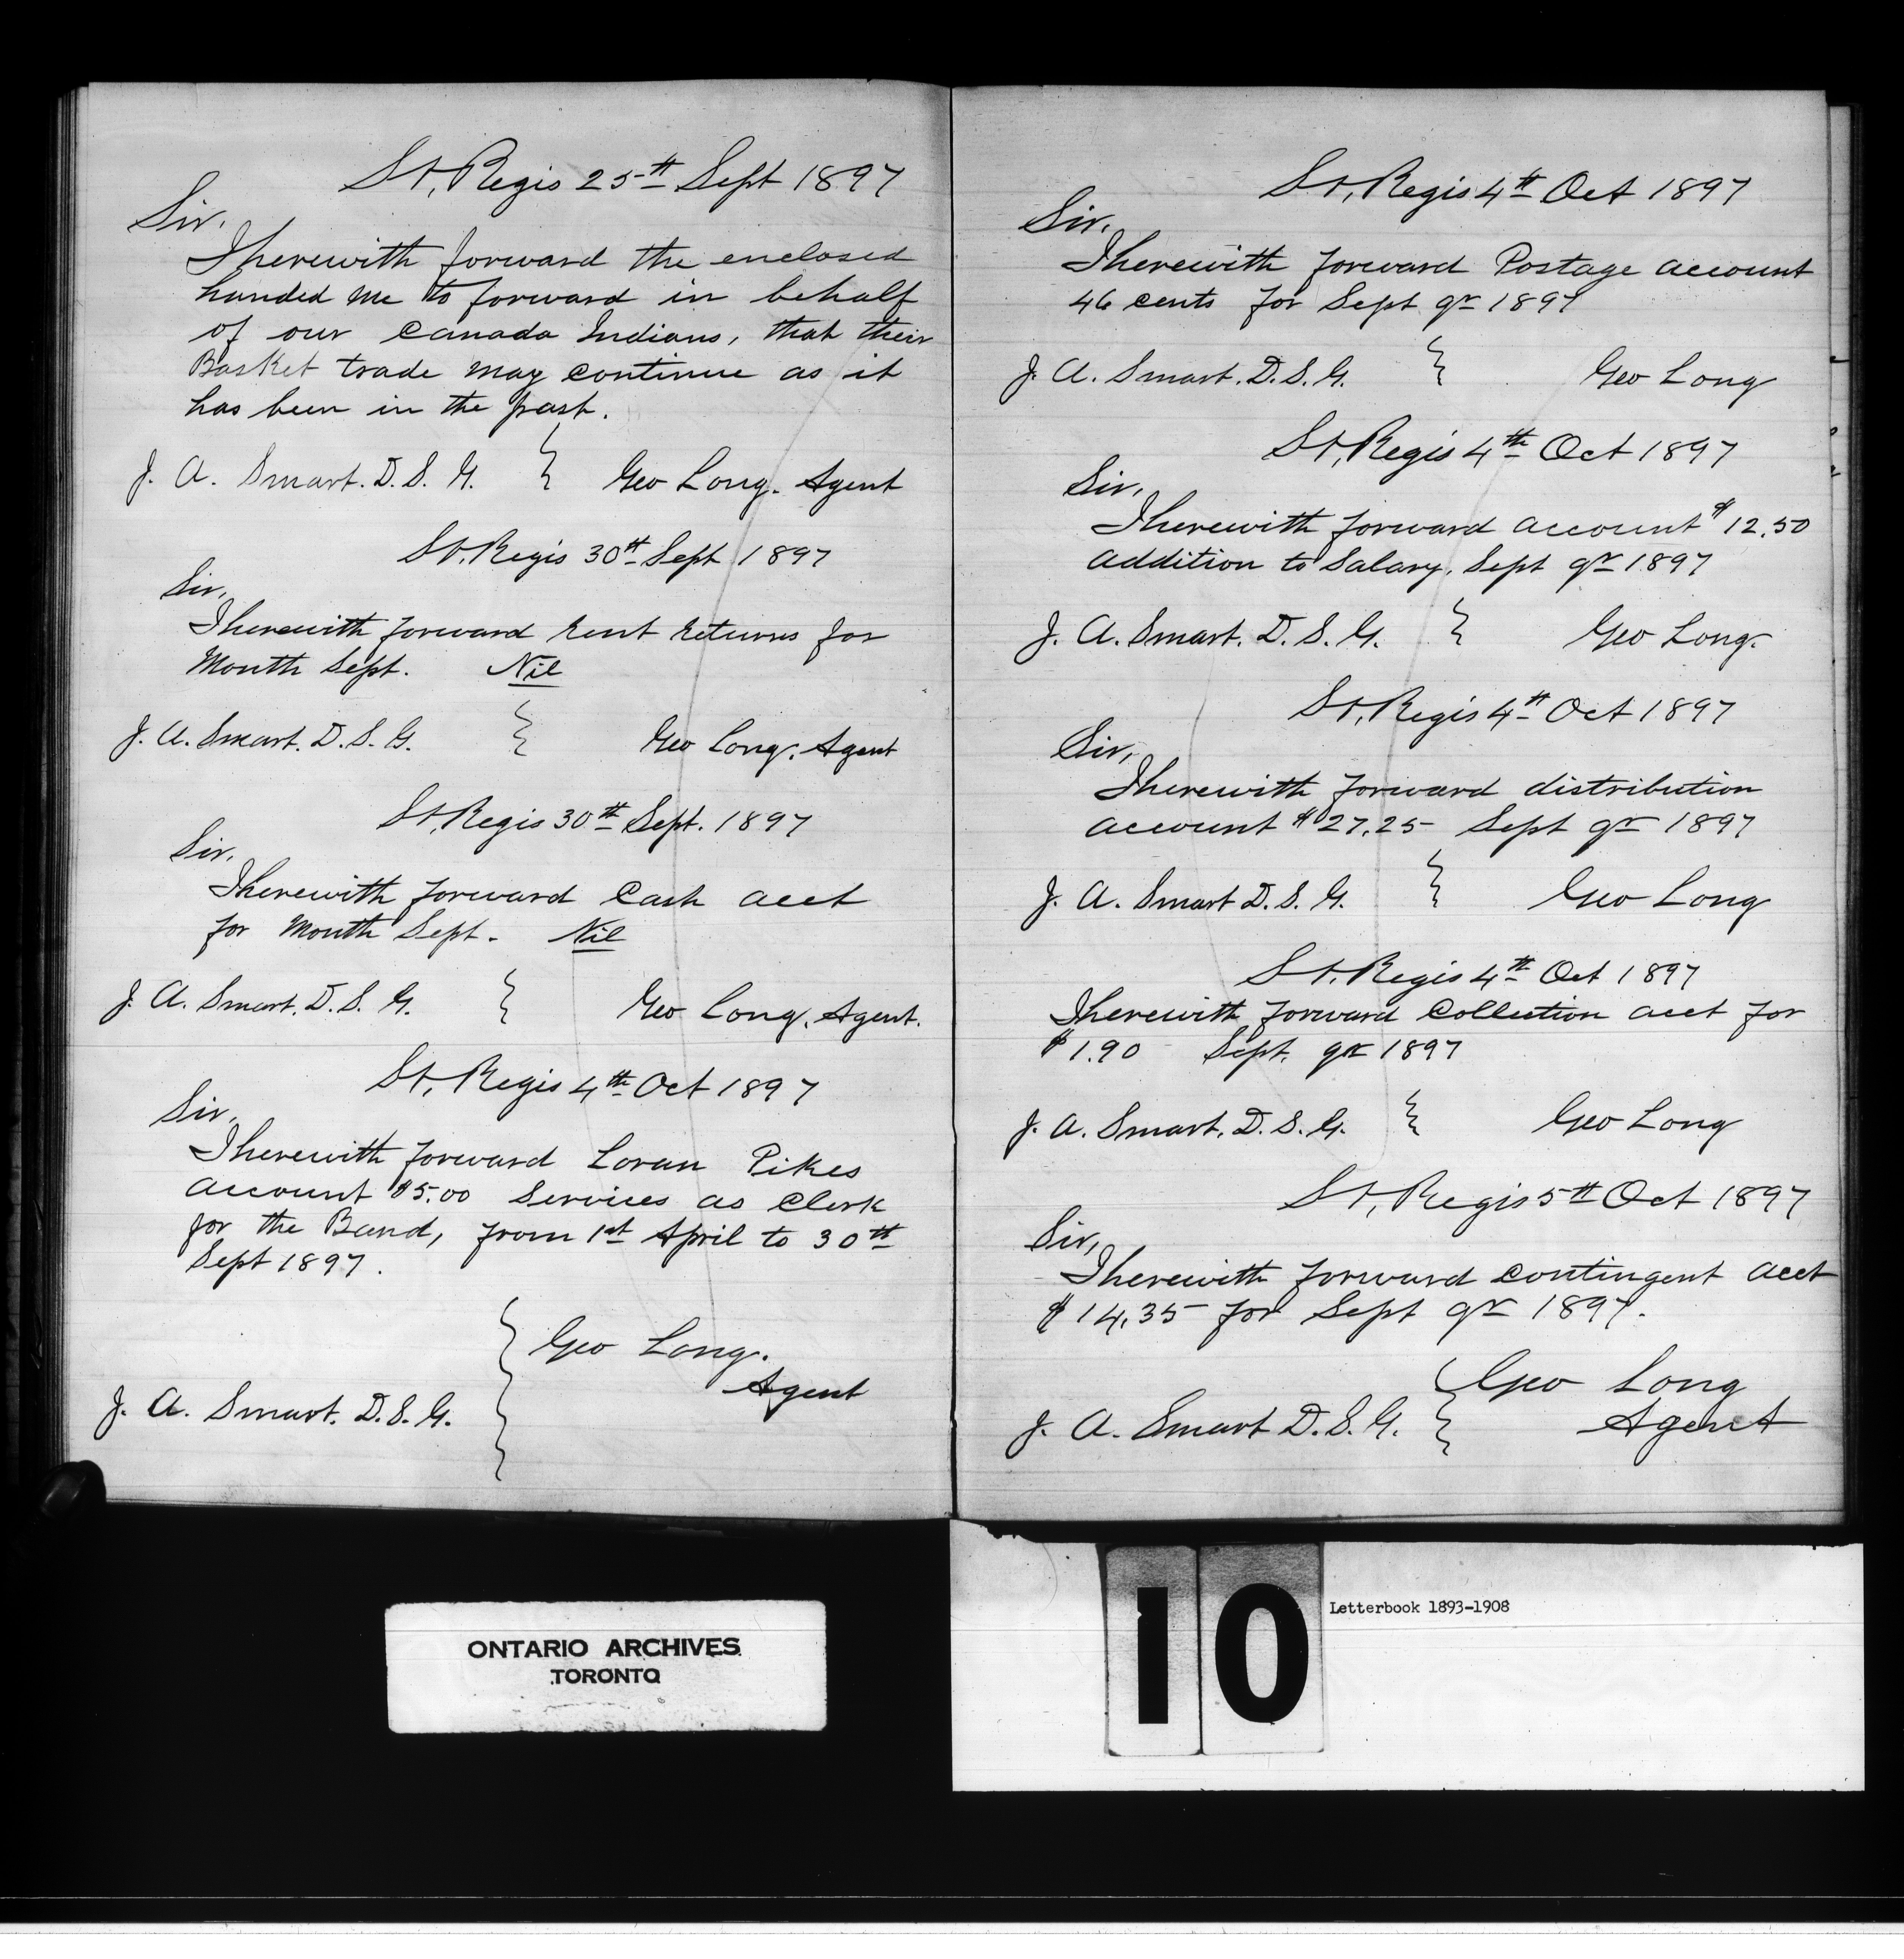 St, Regis 25th Sept 1897
Sir.
I herewith forward the enclosed
handed me to forward in behalf
of our Canada Indians, that their
Basket trade may continue as it
has been in the past.
J. A. Smart. D. S. G. } Geo Long. Agent
St. Regis 30th Sept 1897
Sir,
I herewith forward Rent Returns for
Month Sept. Nil
J. A. Smart. D. S. G. } Geo Long. Agent
St, Regis 30th Sept. 1897
Sir,
I herewith forward Cash acct
for Month Sept. Nil
J. A. Smart. D. S. G. } Geo Long. Agent.
St, Regis 4th Oct 1897
Sir,
I herewith forward Loran Pikes
account $5.00 Services as Clerk
for the Band, from 1st April to 30th
Sept 1897.
Geo Long.
Agent
J. A. Smart. D. S. G. }
St, Regis 4th Oct 1897
Sir,
I herewith forward Postage account
46 cents for Sept qr 1897
J. A. Smart. D. S. G. } Geo Long
St, Regis 4th Oct 1897
Sir,
I herewith forward account $12.50
addition to Salary, Sept qr 1897
J. A. Smart. D. S. G. } Geo Long.
St, Regis 4th Oct 1897
Sir,
I herewith forward distribution
account $27.25 Sept qr 1897
J. A. Smart D. S. G. } Geo Long
St. Regis 4th Oct 1897
I herewith forward Collection acct for
$1.90 Sept. qr 1897
J. A. Smart. D. S. G. } Geo Long
St, Regis 5th Oct 1897
Sir,
I herewith forward contingent acct
$14.35 for Sept qr 1897.
Geo Long
Agent
J. A. Smart D. S. G. }
ONTARIO ARCHIVES
TORONTO
10
Letterbook 1893-1908